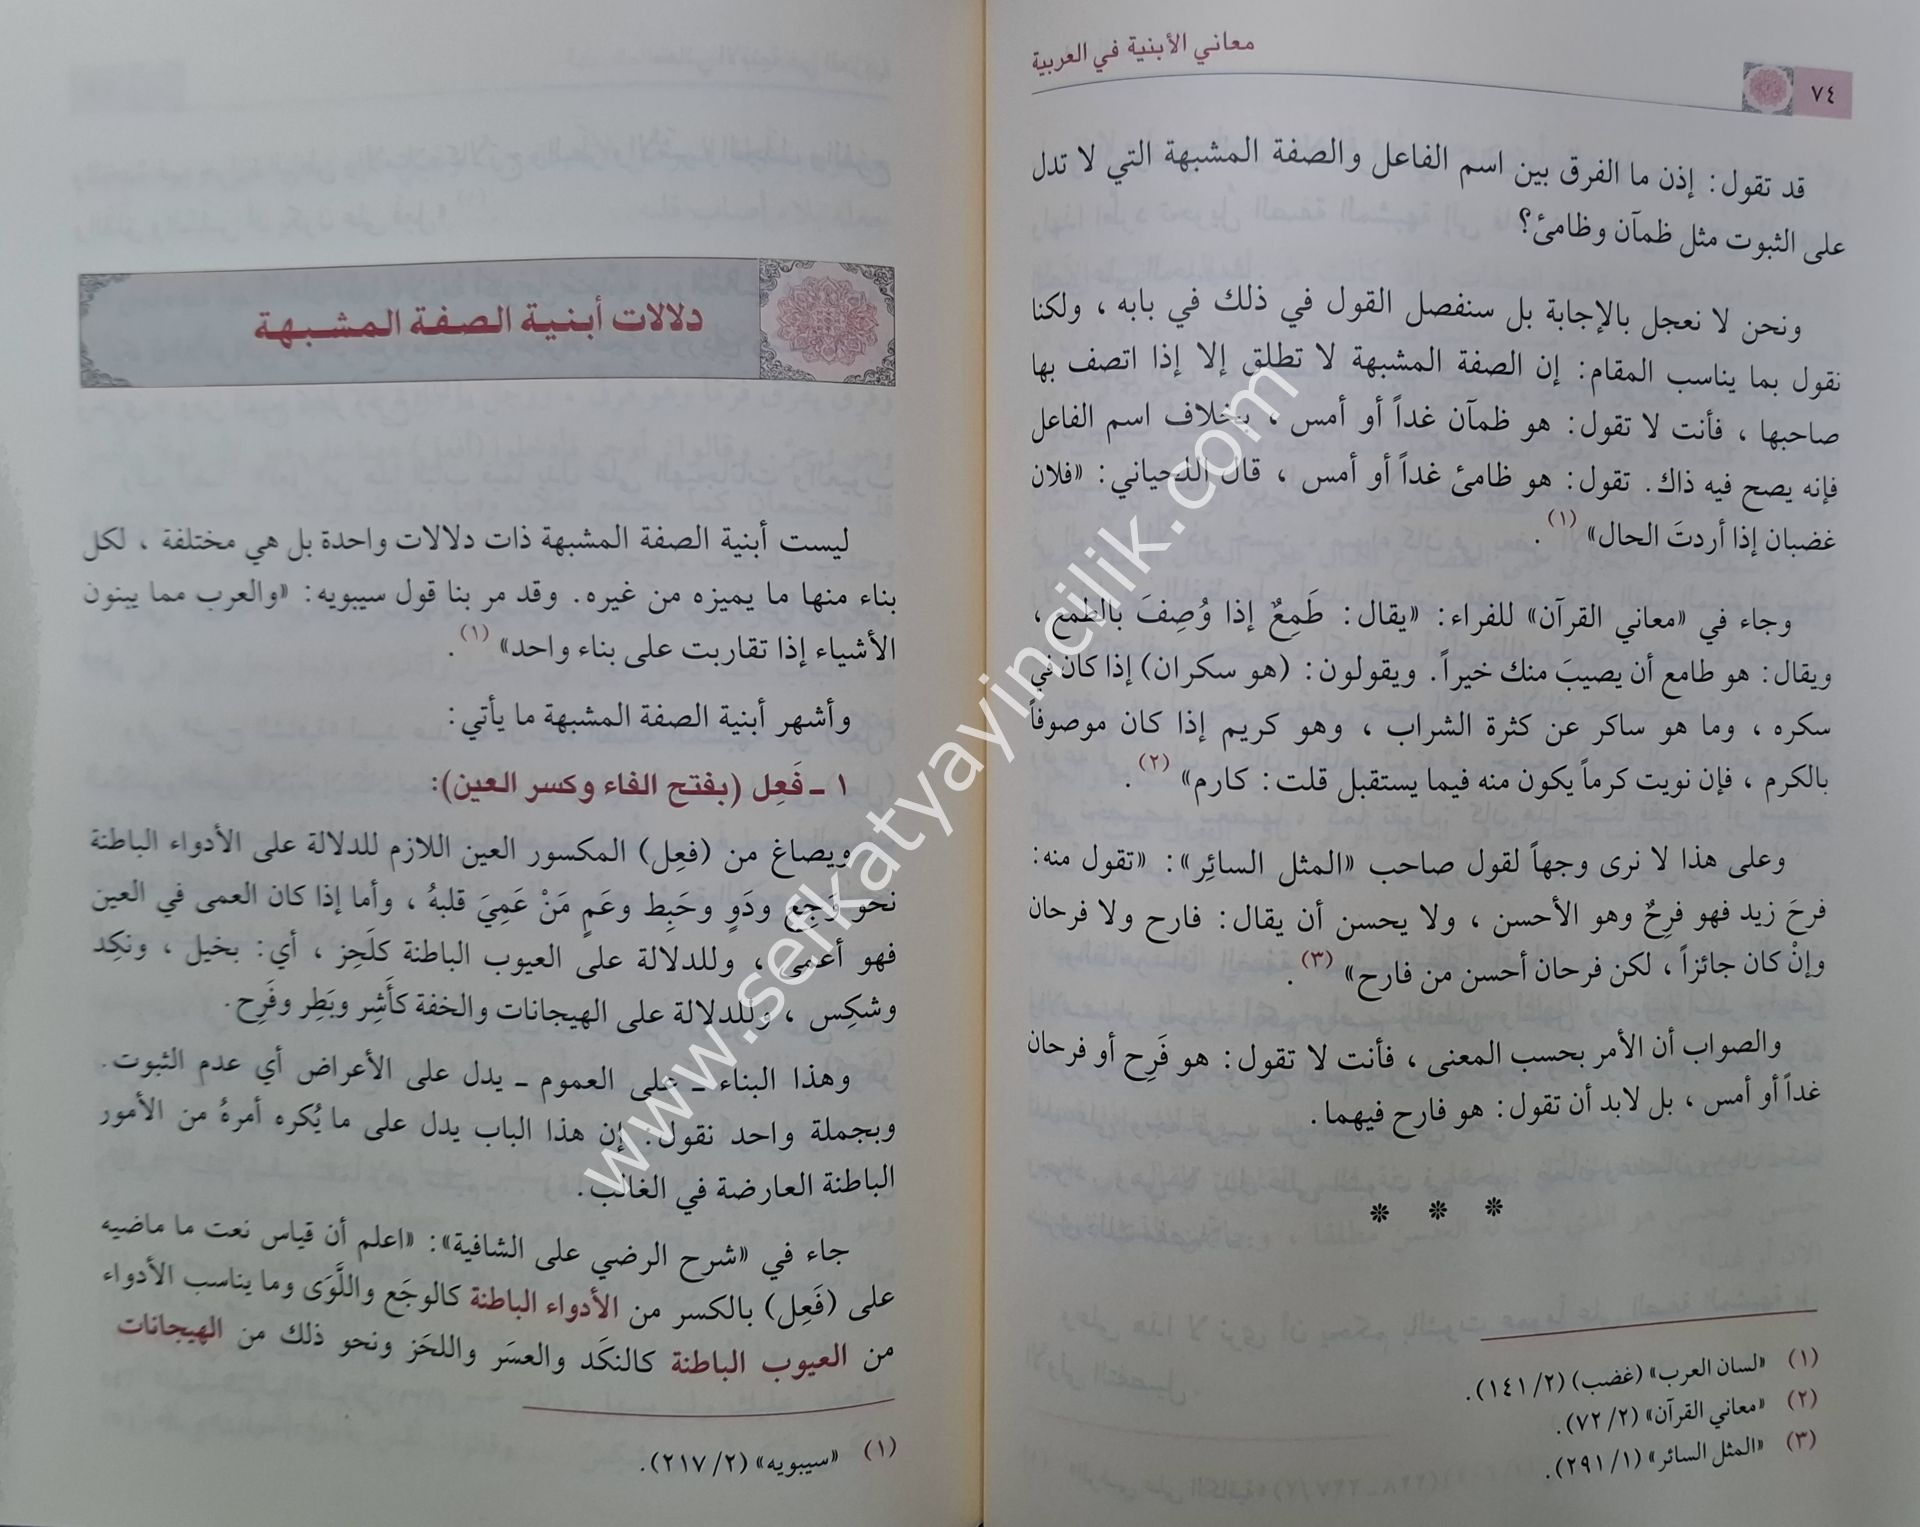 معاني الأبنية في العربية
٧٤
قد تقول: إذن ما الفرق بين اسم الفاعل والصفة المشبهة التي لا تدل
على الثبوت مثل ظمآن وظامئ؟
ونحن لا نعجل بالإجابة بل سنفصل القول في ذلك في بابه ، ولكنا
نقول بما يناسب المقام: إن الصفة المشبهة لا تطلق إلا إذا اتصف بها
صاحبها ، فأنت لا تقول: هو ظمآن غداً أو أمس ، بخلاف اسم الفاعل
فإنه يصح فيه ذاك. تقول: هو ظامئ غداً أو أمس ، قال اللحياني: «فلان
غضبان إذا أردتَ الحال» (١) .
وجاء في «معاني القرآن» للفراء: «يقال: طَمِعٌ إذا وُصِفَ بالطمع ،
ويقال: هو طامع أن يصيبَ منك خيراً. ويقولون: (هو سكران) إذا كان في
سكره ، وما هو ساكر عن كثرة الشراب ، وهو كريم إذا كان موصوفاً
بالكرم ، فإن نويت كرماً يكون منه فيما يستقبل قلت: كارم» (٢) .
وعلى هذا لا نرى وجهاً لقول صاحب «المثل السائِر»: «تقول منه:
فرحَ زيد فهو فرِحٌ وهو الأحسن ، ولا يحسن أن يقال: فارح ولا فرحان
وإنْ كان جائزاً ، لكن فرحان أحسن من فارح» (٣) .
والصواب أن الأمر بحسب المعنى ، فأنت لا تقول: هو فَرِح أو فرحان
غداً أو أمس ، بل لابد أن تقول: هو فارح فيهما.
* * *
(١) «لسان العرب» (غضب) (٢/ ١٤١).
(٢) «معاني القرآن» (٢/ ٧٢).
(٣) «المثل السائر» (١/ ٢٩١).
دلالات أبنية الصفة المشبهة
ليست أبنية الصفة المشبهة ذات دلالات واحدة بل هي مختلفة ، لكل
بناء منها ما يميزه من غيره. وقد مر بنا قول سيبويه: «والعرب مما يبنون
الأشياء إذا تقاربت على بناء واحد» (١) .
وأشهر أبنية الصفة المشبهة ما يأتي:
١ ـ فَعِل (بفتح الفاء وكسر العين):
ويصاغ من (فعِل) المكسور العين اللازم للدلالة على الأدواء الباطنة
نحو وَجِع ودَوٍ وحَبِط وعَمٍ مَنْ عَمِيَ قلبهُ ، وأما إذا كان العمى في العين
فهو أعمى ، وللدلالة على العيوب الباطنة كلَحِز ، أي: بخيل ، ونكِد
وشكِس ، وللدلالة على الهيجانات والخفة كأَشِر وبَطِر وفَرِح.
وهذا البناء ـ على العموم ـ يدل على الأعراض أي عدم الثبوت.
وبجملة واحد نقول: إن هذا الباب يدل على ما يُكره أمرهُ من الأمور
الباطنة العارضة في الغالب.
جاء في «شرح الرضي على الشافية»: «اعلم أن قياس نعت ما ماضيه
على (فَعِل) بالكسر من الأدواء الباطنة كالوجَع واللَّوَى وما يناسب الأدواء
من العيوب الباطنة كالنكَد والعسَر واللحَز ونحو ذلك من الهيجانات
(١) «سيبويه» (٢/ ٢١٧).
www.sefkatyayincilik.com